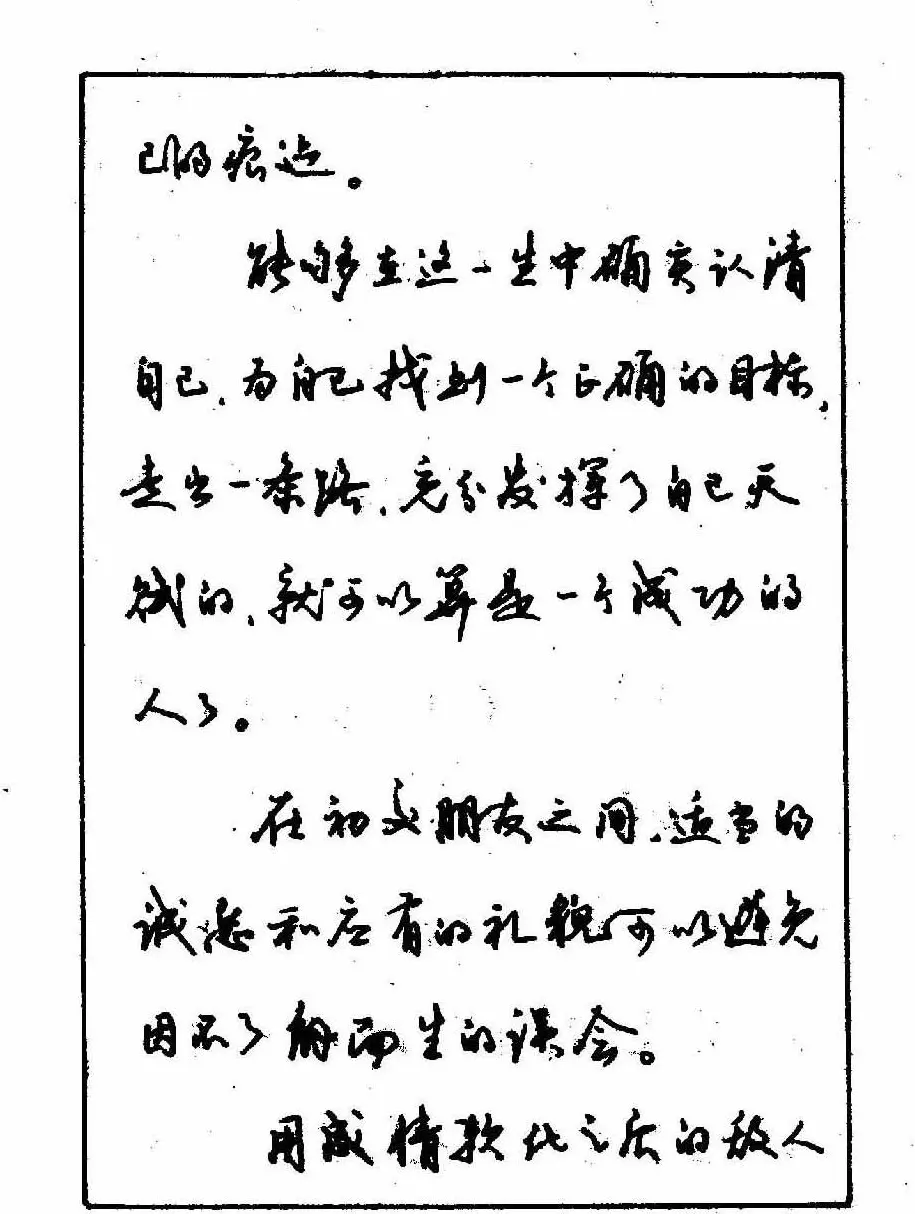 己的痕迹。
能够在这一生中确实认清
自己,为自己找到一个正确的目标,
走出一条路,充分发挥了自己天
赋的,就可以算是一个成功的
人了。
在初交朋友之间,适当的
诚恳和应有的礼貌可以避免
因不了解而生的误会。
用感情软化之后的敌人